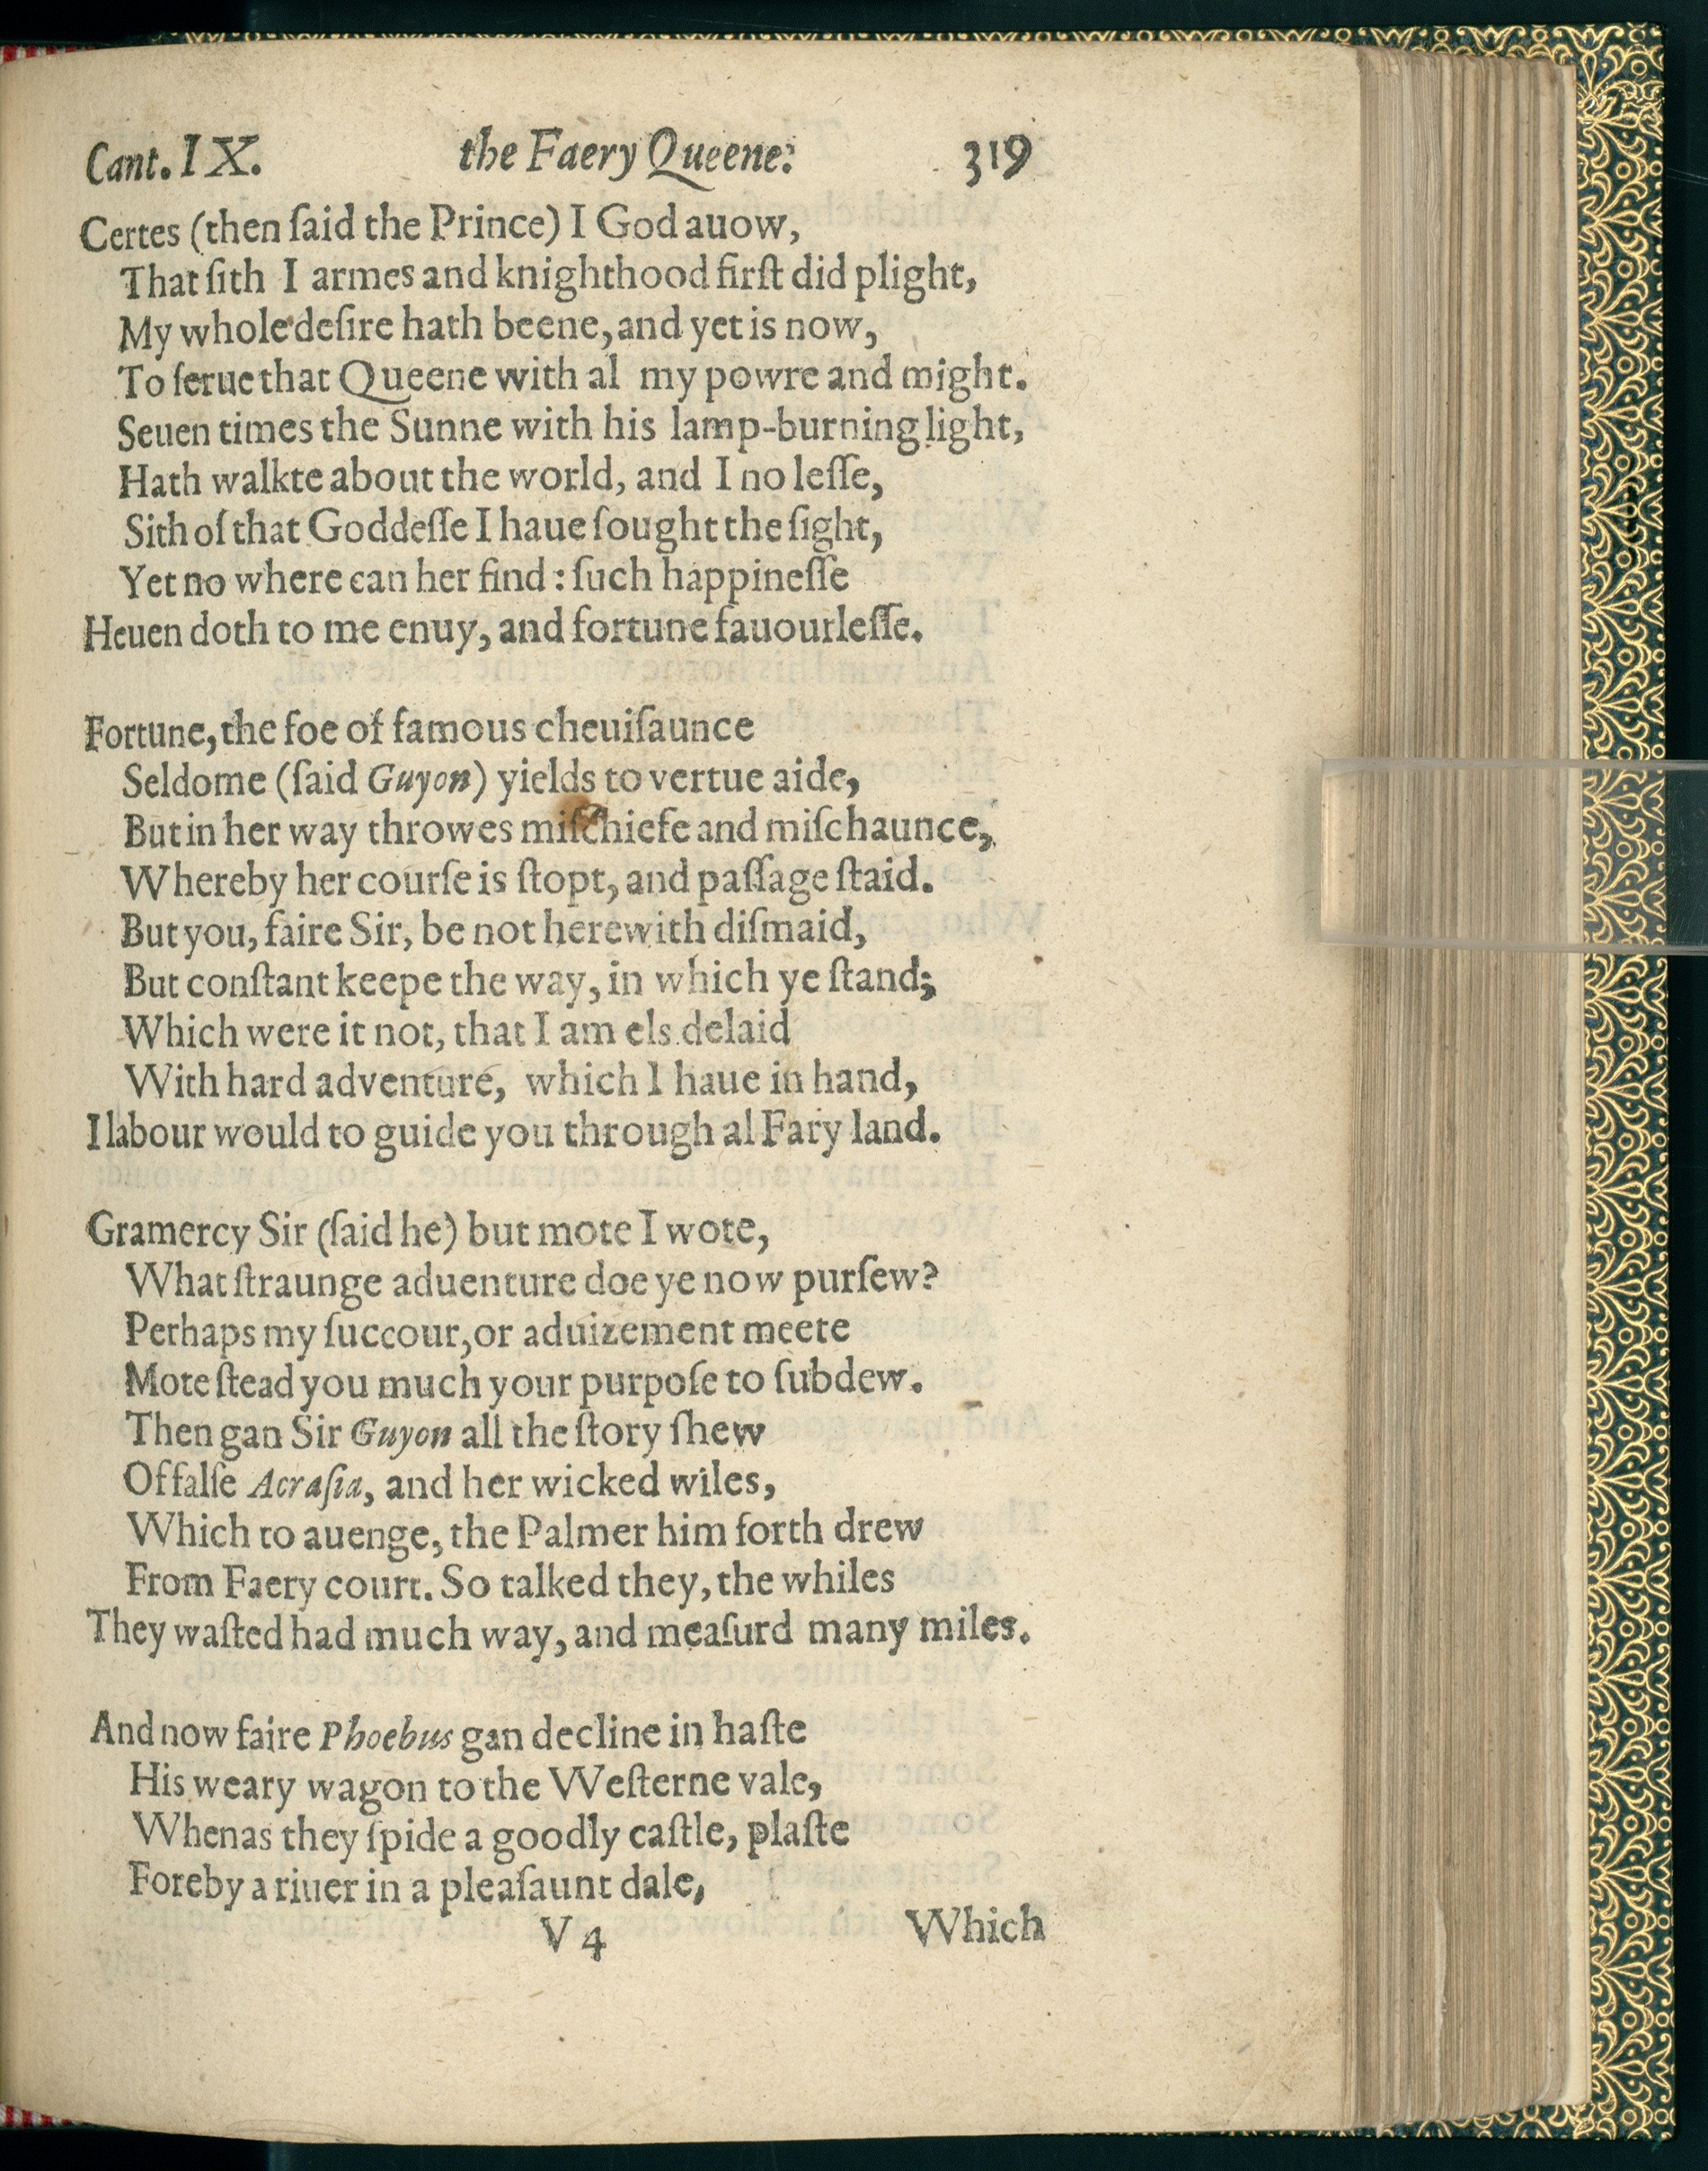 Cant. IX. the Faery Queene: 319
Certes (then ſaid the Prince) I God auow,
That ſith I armes and knighthood firſt did plight,
My whole deſire hath beene, and yet is now,
To ſerue that Queene with al my powre and might.
Seuen times the Sunne with his lamp-burning light,
Hath walkte about the world, and I no leſſe,
Sith of that Goddeſſe I haue ſought the ſight,
Yet no where can her find: ſuch happineſſe
Heuen doth to me enuy, and fortune fauourleſſe.
Fortune, the foe of famous cheuiſaunce
Seldome (ſaid Guyon) yields to vertue aide,
But in her way throwes miſchiefe and miſchaunce,
Whereby her courſe is ſtopt, and paſſage ſtaid.
But you, faire Sir, be not herewith diſmaid,
But conſtant keepe the way, in which ye ſtand;
Which were it not, that I am els delaid
With hard adventure, which I haue in hand,
I labour would to guide you through al Fary land.
Gramercy Sir (ſaid he) but mote I wote,
What ſtraunge aduenture doe ye now purſew?
Perhaps my ſuccour, or aduizement meete
Mote ſtead you much your purpoſe to ſubdew.
Then gan Sir Guyon all the ſtory ſhew
Of falſe Acraſia, and her wicked wiles,
Which to auenge, the Palmer him forth drew
From Faery court. So talked they, the whiles
They waſted had much way, and meaſurd many miles.
And now faire Phoebus gan decline in haſte
His weary wagon to the Weſterne vale,
Whenas they ſpide a goodly caſtle, plaſte
Foreby a riuer in a pleaſaunt dale,
V 4 Which